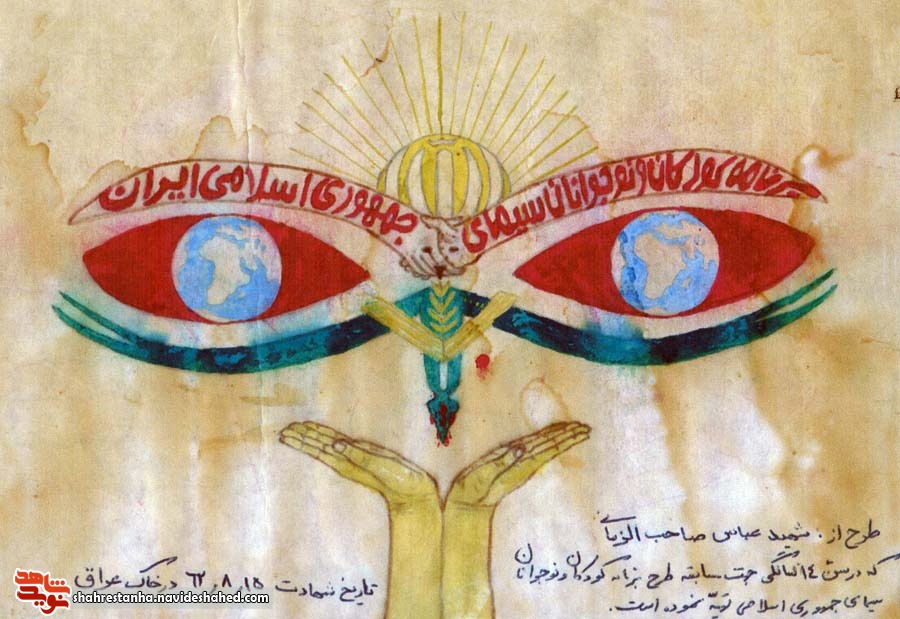 برنامه کودکان و نوجوانان سیمای
جمهوری اسلامی ایران
طرح از: شهید عباس صاحب الزمانی
که در سن ۱۴ سالگی جهت مسابقه طرح برنامه کودکان و نوجوانان
سیمای جمهوری اسلامی تهیه نموده است.
تاریخ شهادت ۶۲.۸.۱۵ در خاک عراق
نوید شاهد
shahrestanha.navideshahed.com